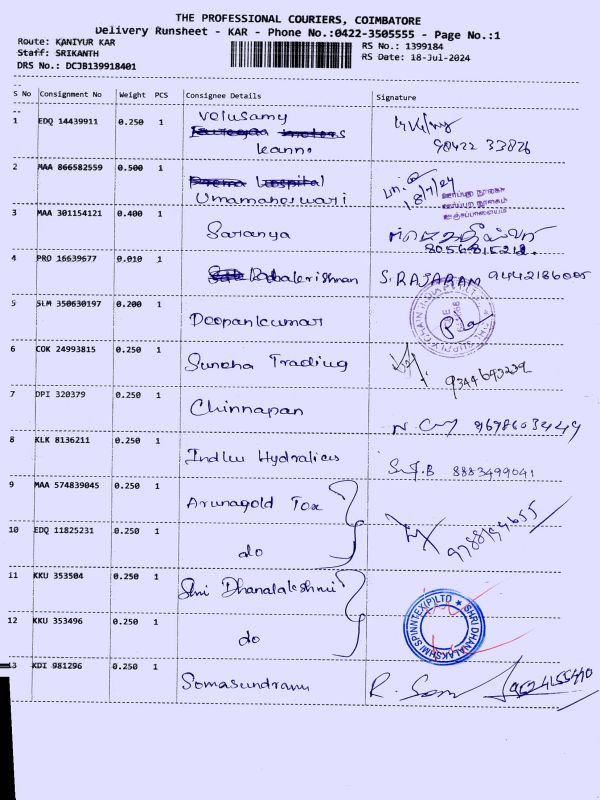 THE PROFESSIONAL COURIERS, COIMBATORE
Delivery Runsheet - KAR - Phone No.:0422-3505555 - Page No.:1
Route: KANIYUR KAR
RS No.: 1399184
Staff: SRIKANTH
RS Date: 18-Jul-2024
DRS No.: DCJB139918401
S No Consignment No Weight PCS Consignee Details Signature
Velusamy
1 EDQ 14439911 0.250 1
98422 33826
2 MAA 866582559 0.500 1
18/7/24
Umamaheswari
3 MAA 301154121 0.400 1
Saranya
8056815212
4 PRO 16639677 0.010 1
S. RAJARAM 9442186005
5 SLM 350630197 0.200 1
Deepankumar
6 COK 24993815 0.250 1
Suneha Trading
9344693239
7 DPI 320379 0.250 1
Chinnapan
8 KLK 8136211 0.250 1
8883499041
9 MAA 574839045 0.250 1
Arunagold Tex
10 EDQ 11825231 0.250 1
do
11 KKU 353504 0.250 1
Shri Dhanalakshmi
12 KKU 353496 0.250 1
do
SHRI DHANALAKSHMI SPINNTEX (P) LTD
13 KDI 981296 0.250 1
Somasundram
R. Som